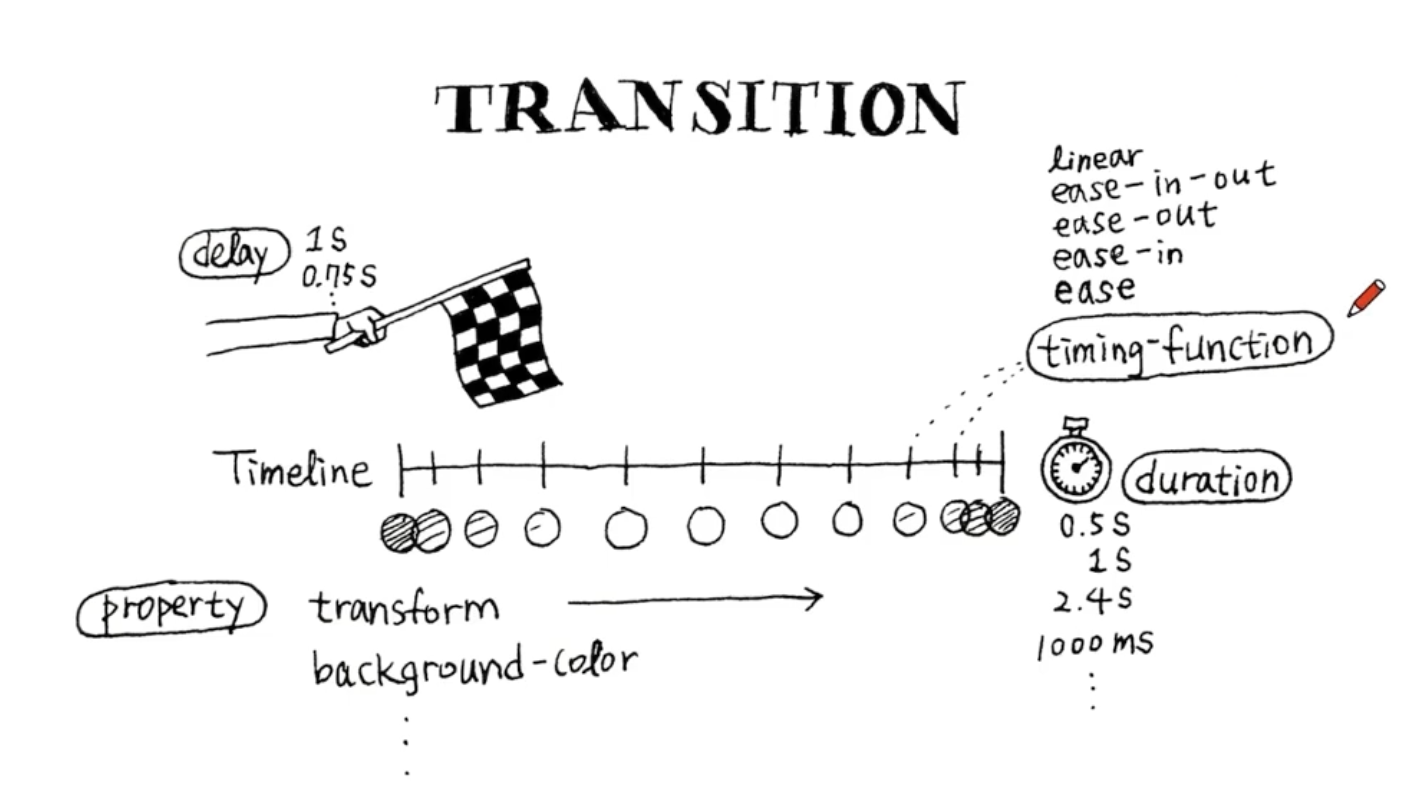 TRANSITION
linear
ease-in-out
ease-out
ease-in
ease
timing-function
delay
1s
0.75s
Timeline
duration
0.5s
1s
2.4s
1000ms
property
transform
background-color